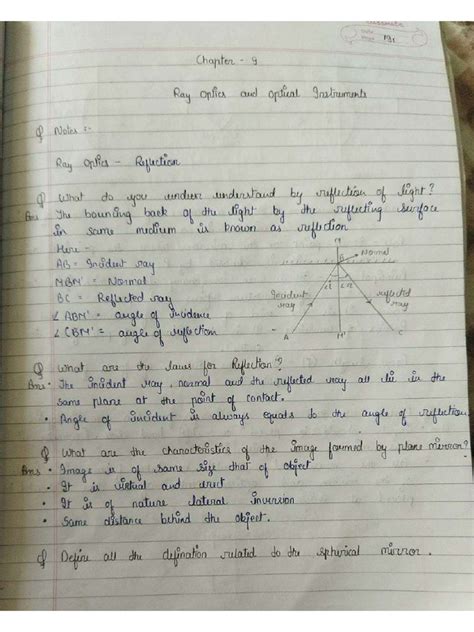 classmate
Date
Page
Chapter - 9
Ray optics and optical Instruments
Q Notes :-
Ray optics - Reflection
Q What do you undeer understand by reflection of light?
Ans The bouncing back of the light by the reflecting surface
in same medium is known as reflection
Here -
AB = Incident ray
MBM' = Normal
BC = Reflected ray
∠ABM' = angle of incidence
∠CBM' = angle of reflection
M
B
Normal
∠i ∠r
Incident
ray
reflected
ray
A M' C
Q What are the laws for Reflection?
Ans • The incident ray, normal and the reflected ray all lie in the
same plane at the point of contact.
• Angle of incident is always equals to the angle of reflection
Q What are the characteristics of the image formed by plane mirror?
Ans • Image is of same size that of object
• It is virtual and erect
• It is of nature lateral inversion
• Same distance behind the object.
Q Define all the defination related to the spherical mirror.